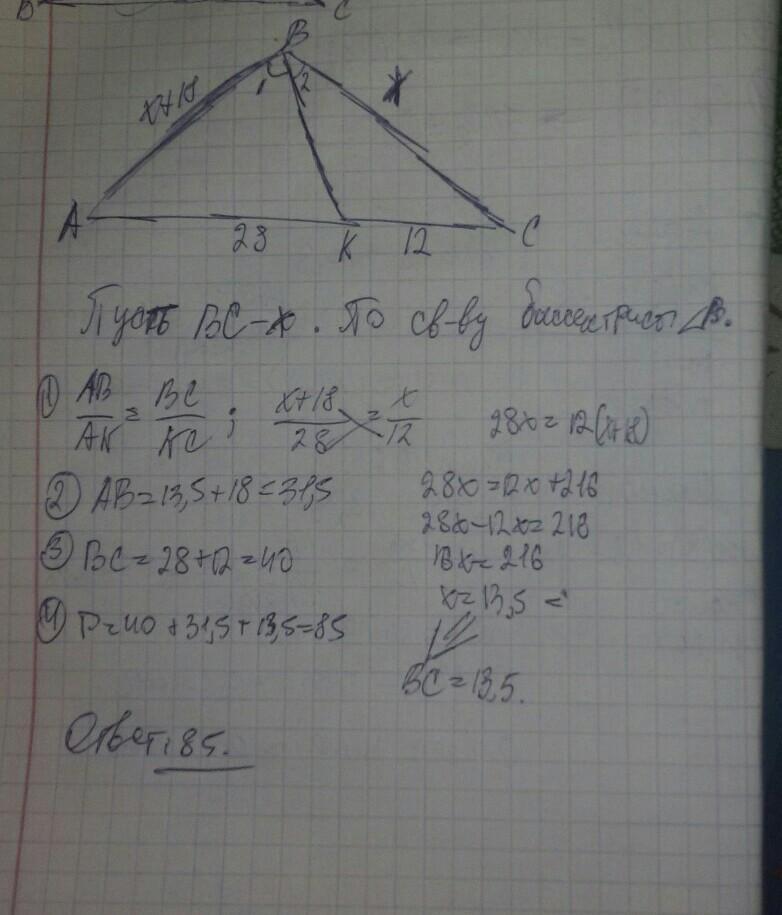 В С
В
x+18 1 2 x
A 28 K 12 C
Пусть BC-x. По св-ву биссектрисы ∠B.
① AB/AK = BC/KC; x+18/28 = x/12 28x=12(x+18)
② AB=13,5+18=31,5 28x=12x+216
28x-12x=216
③ BC=28+12=40 16x=216
x=13,5 =>
④ P=40+31,5+13,5=85
BC=13,5.
Ответ: 85.